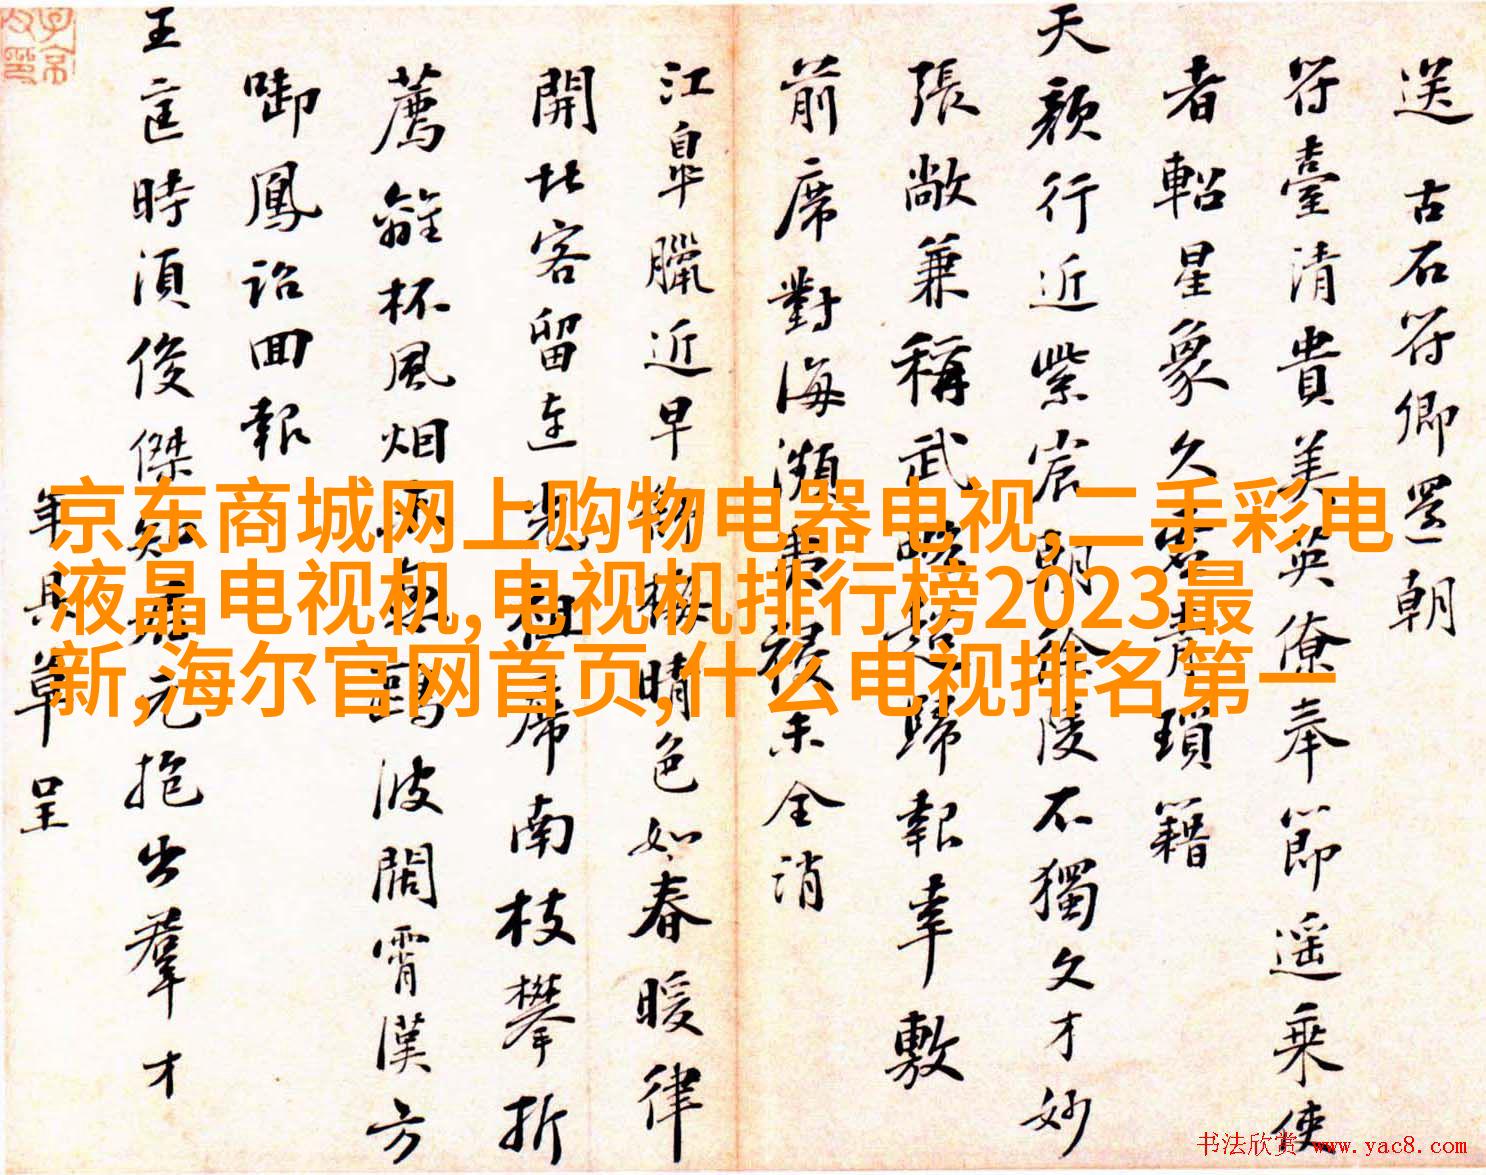 送古石符卿還朝
符臺清貴美英僚奉節遥乗使
者軺星象久青瑣籍
天顔行近紫宸朝徐陵不獨文才妙
張敞兼稱武略超歸報幸敷
前席對海瀕未全消
江臯臘近早梅晴色如春暖律
開北客留連祖席南枝攀折
薦離杯風烟雨鷗波闊霄漢方
啣鳳詔回報
王匡時須俊傑知君元抱出羣才
年具草呈
京东商城网上购物电器电视,二手彩电
液晶电视机,电视机排行榜2023最
新,海尔官网首页,什么电视排名第一
书法欣赏 www.yac8.com